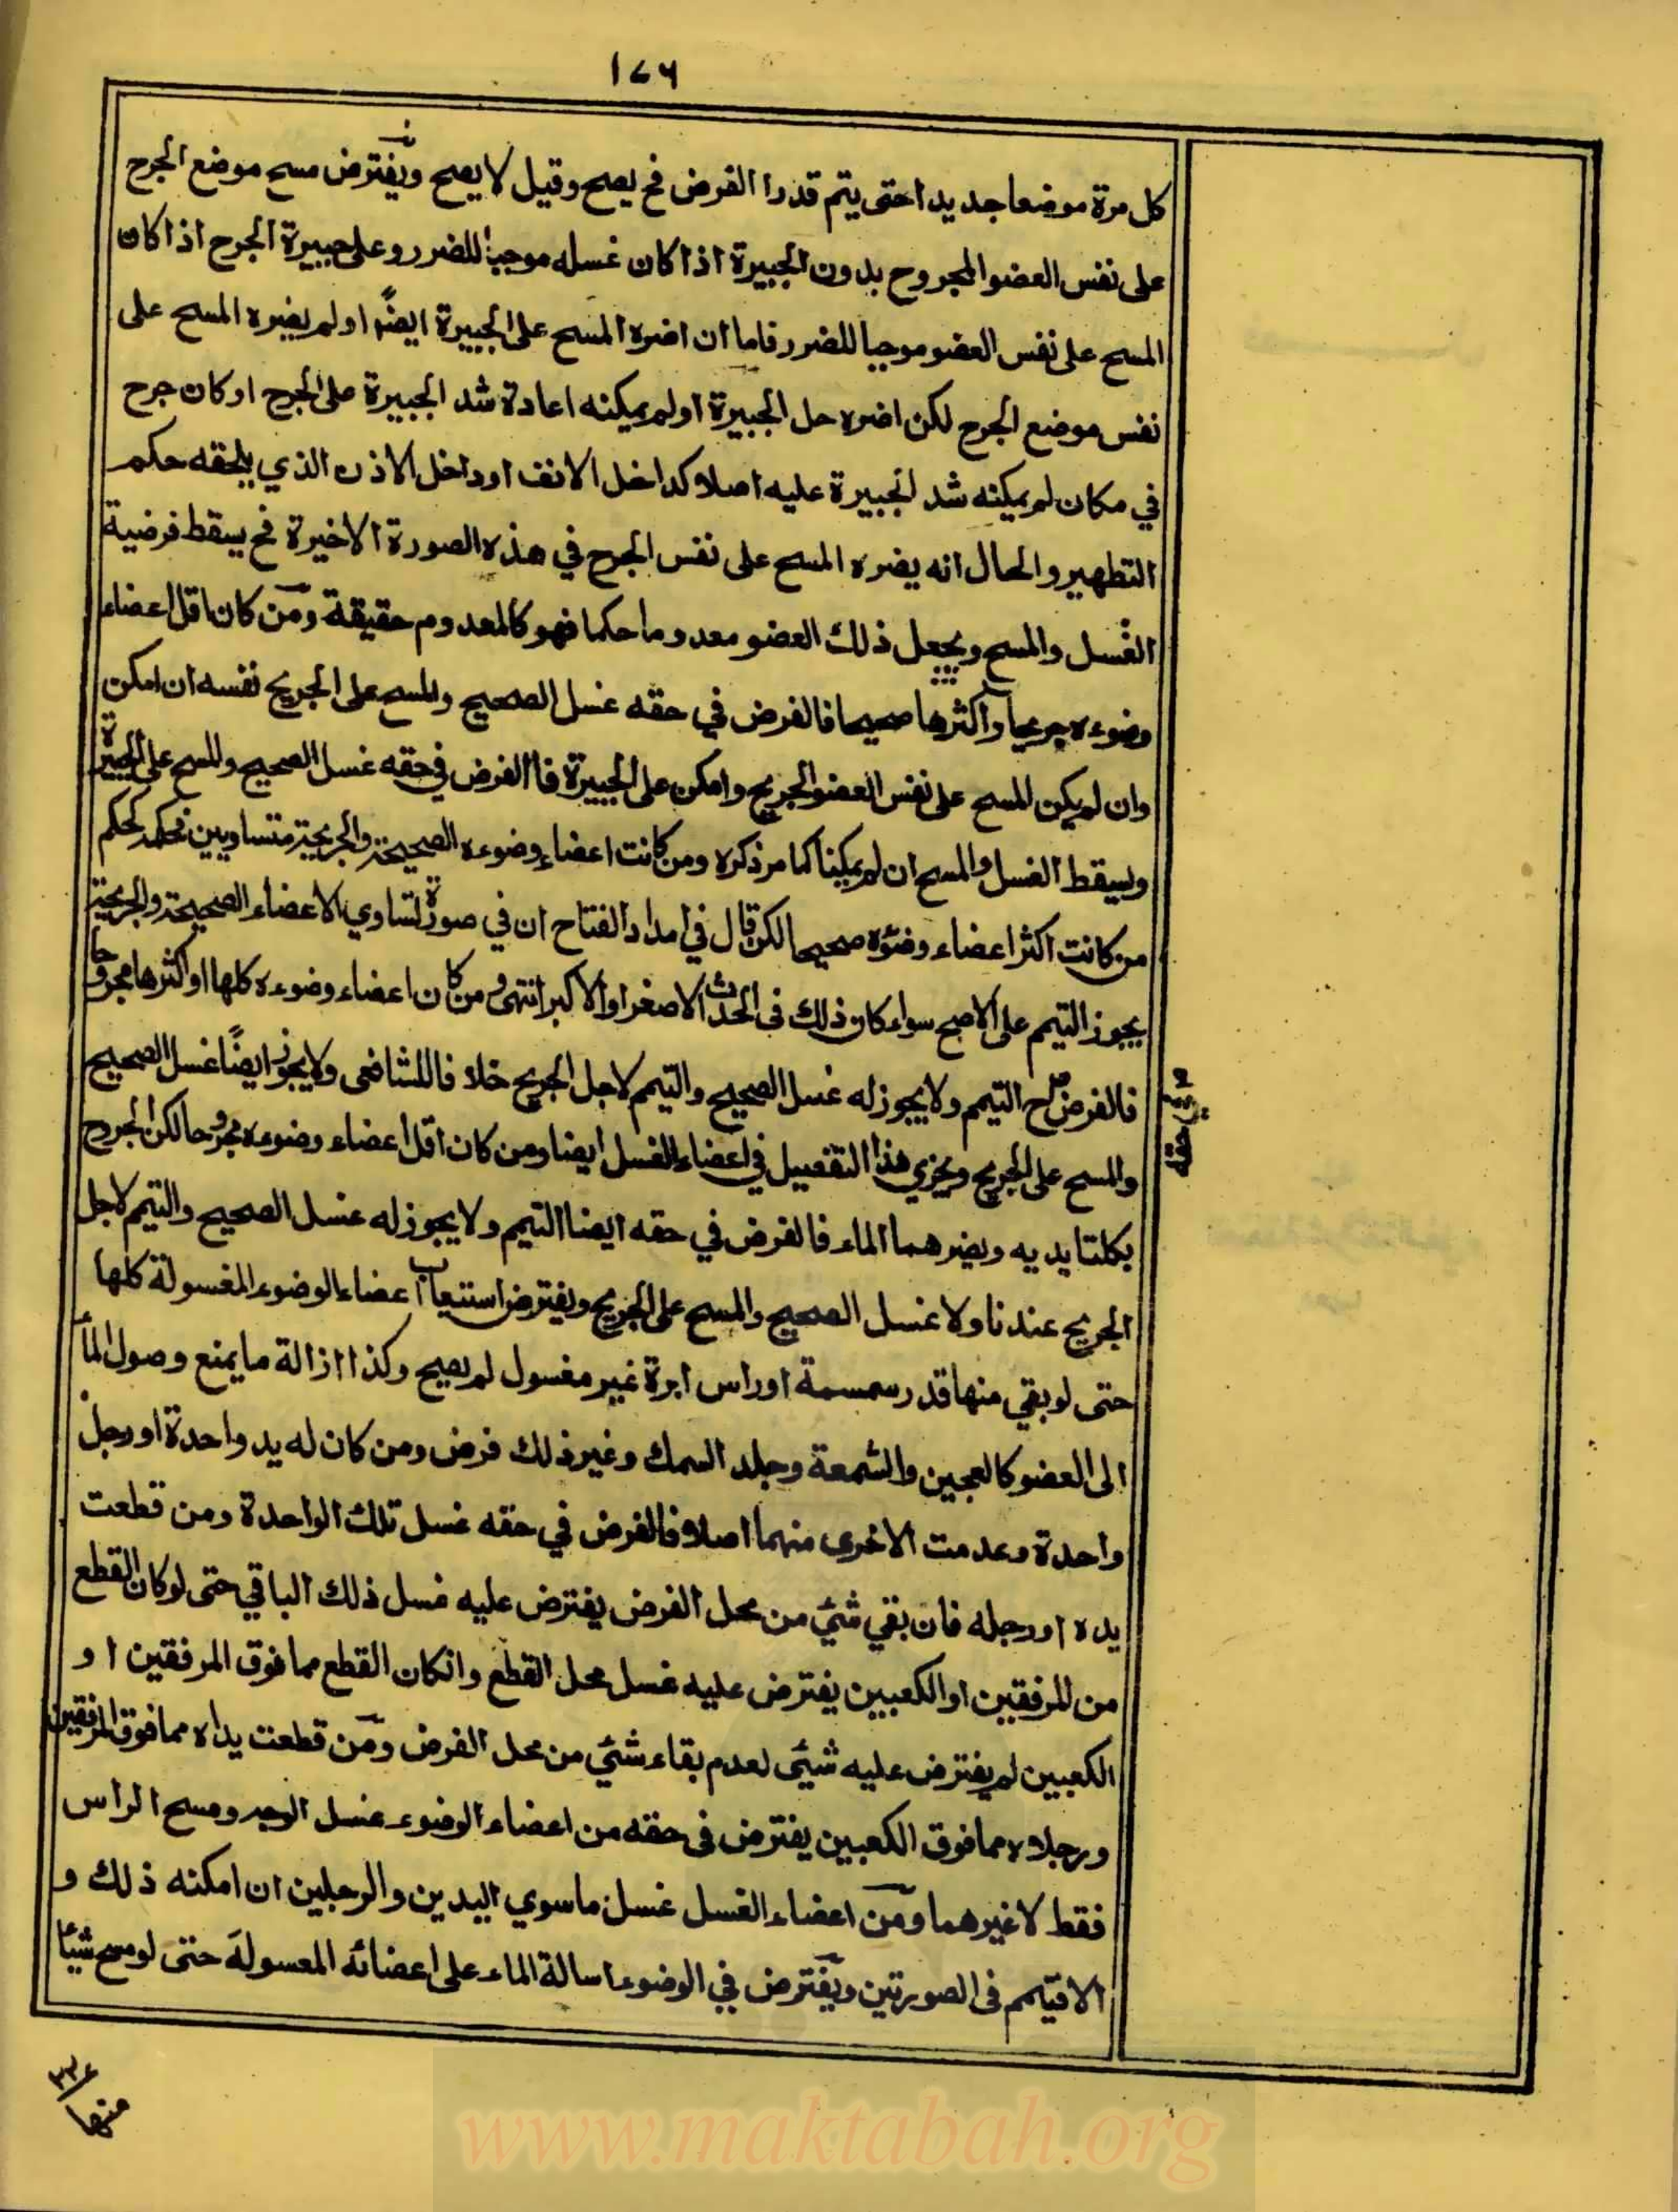 ١٧٦
كل مرة موضعا جديدا حتى يتم قدرا الفرض فح يصح وقيل لا يصح ويفترض مسح موضع الجرح
على نفس العضو المجروح بدون الجبيرة اذا كان غسله موجبا للضرر وعلى جبيرة الجرح اذا كان
المسح على نفس العضو موجبا للضرر فاما ان اضره المسح على الجبيرة ايضًا او لم يضره المسح على
نفس موضع الجرح لكن اضره حل الجبيرة او لم يمكنه اعادة شد الجبيرة على الجرح او كان جرح
في مكان لم يمكنه شد الجبيرة عليه اصلا كداخل الانف او داخل الاذن الذي يلحقه حكم
التطهير والحال انه يضره المسح على نفس الجرح في هذه الصورة الاخيرة فح يسقط فرضية
الغسل والمسح ويجعل ذلك العضو معدوما حكما فهو كالمعدوم حقيقة ومن كان اقل اعضاء
وضوءه جريحا واكثرها صحيحا فالفرض في حقه غسل الصحيح والمسح على الجريح نفسه ان امكن
وان لم يكن المسح على نفس العضو الجريح وامكن على الجبيرة فا الفرض في حقه غسل الصحيح والمسح على الجبيرة
ويسقط الغسل والمسح ان لم يمكنا كما مر ذكره ومن كانت اعضاء وضوءه الصحيحة والجريحة متساويين فحكمه كحكم
من كانت اكثر اعضاء وضوئه صحيحا لكن قال في امداد الفتاح ان في صورة تساوي الاعضاء الصحيحة والجريحة
يجوز التيمم على الاصح سواء كان ذلك في الحدث الاصغر او الاكبر انتهى ومن كان اعضاء وضوءه كلها او اكثرها مجروحا
فالفرض ح التيمم ولا يجوز له غسل الصحيح والتيمم لاجل الجريح خلافا للشافعي ولا يجوز ايضًا غسل الصحيح
والمسح على الجريح ويجزي هذا التفصيل في اعضاء الغسل ايضا ومن كان اقل اعضاء وضوءه مجروحا لكن الجروح
بكلتا يديه ويضرهما الماء فالفرض في حقه ايضا التيمم ولا يجوز له غسل الصحيح والتيمم لاجل
الجريح عندنا ولا غسل الصحيح والمسح على الجريح ويفترض استيعاب اعضاء الوضوء المغسولة كلها
حتى لو بقي منها قدر سمسمة او راس ابرة غير مغسول لم يصح وكذا ازالة ما يمنع وصول الماء
الى العضو كالعجين والشمعة وجلد السمك وغير ذلك فرض ومن كان له يد واحدة او رجل
واحدة وعدمت الاخرى منهما اصلا فالفرض في حقه غسل تلك الواحدة ومن قطعت
يده او رجله فان بقي شئ من محل الفرض يفترض عليه غسل ذلك الباقي حتى لو كان القطع
من المرفقين او الكعبين يفترض عليه غسل محل القطع وانكان القطع مما فوق المرفقين او
الكعبين لم يفترض عليه شيئ لعدم بقاء شئ من محل الفرض ومن قطعت يداه مما فوق المرفقين
ورجلاه مما فوق الكعبين يفترض في حقه من اعضاء الوضوء غسل الوجه ومسح الراس
فقط لا غيرهما ومن اعضاء الغسل غسل ما سوي اليدين والرجلين ان امكنه ذلك و
الا فيتيمم في الصورتين ويفترض في الوضوء اسالة الماء على اعضائه المعسولة حتى لو مسح شيئا
في حقه
منها
www.maktabah.org